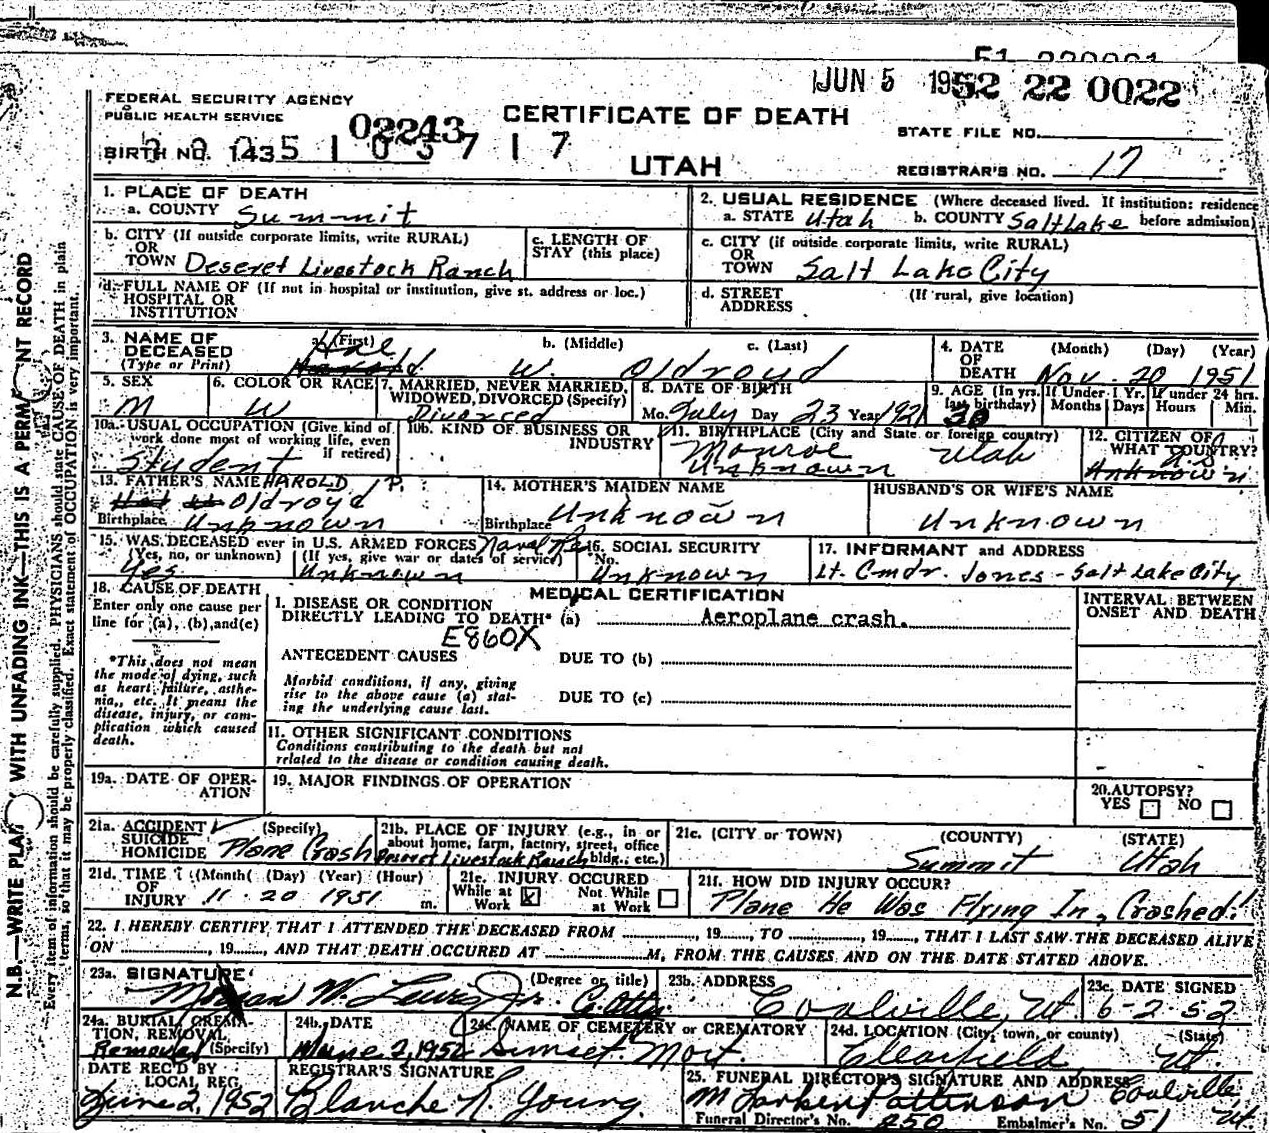 JUN 5 1952 22 0022
FEDERAL SECURITY AGENCY
PUBLIC HEALTH SERVICE
02243
CERTIFICATE OF DEATH
STATE FILE NO.
BIRTH NO. 1435
UTAH
REGISTRAR'S NO. 17
1. PLACE OF DEATH
a. COUNTY Summit
2. USUAL RESIDENCE (Where deceased lived. If institution: residence before admission)
a. STATE Utah b. COUNTY Salt Lake
b. CITY (If outside corporate limits, write RURAL)
OR
TOWN Deseret Livestock Ranch
c. LENGTH OF
STAY (this place)
c. CITY (if outside corporate limits, write RURAL)
OR
TOWN Salt Lake City
d. FULL NAME OF (If not in hospital or institution, give st. address or loc.)
HOSPITAL OR
INSTITUTION
d. STREET
ADDRESS
(If rural, give location)
3. NAME OF
DECEASED
(Type or Print)
a. (First) b. (Middle) c. (Last)
Hal
Harold W. Oldroyd
4. DATE
OF
DEATH
(Month) (Day) (Year)
Nov. 20 1951
5. SEX
M
6. COLOR OR RACE
W
7. MARRIED, NEVER MARRIED,
WIDOWED, DIVORCED (Specify)
Divorced
8. DATE OF BIRTH
Mo. July Day 23 Year 1921
9. AGE (In yrs. last birthday)
30
If Under 1 Yr.
Months Days
If under 24 hrs.
Hours Min.
10a. USUAL OCCUPATION (Give kind of
work done most of working life, even
if retired)
Student
10b. KIND OF BUSINESS OR
INDUSTRY
11. BIRTHPLACE (City and State or foreign country)
Monroe Utah
Unknown
12. CITIZEN OF
WHAT COUNTRY?
U.S
Unknown
13. FATHER'S NAME HAROLD P.
Oldroyd
Birthplace Unknown
14. MOTHER'S MAIDEN NAME
Unknown
Birthplace
HUSBAND'S OR WIFE'S NAME
Unknown
15. WAS DECEASED ever in U.S. ARMED FORCES Naval Res
(Yes, no, or unknown) (If yes, give war or dates of service)
Yes Unknown
16. SOCIAL SECURITY
No.
Unknown
17. INFORMANT and ADDRESS
Lt. Cmdr. Jones - Salt Lake City
18. CAUSE OF DEATH
Enter only one cause per
line for (a), (b), and (c)
*This does not mean
the mode of dying, such
as heart failure, asthe-
nia, etc. It means the
disease, injury, or com-
plication which caused
death.
MEDICAL CERTIFICATION
I. DISEASE OR CONDITION
DIRECTLY LEADING TO DEATH* (a) Aeroplane crash.
E860X
ANTECEDENT CAUSES DUE TO (b)
Morbid conditions, if any, giving
rise to the above cause (a) stat-
ing the underlying cause last.
DUE TO (c)
II. OTHER SIGNIFICANT CONDITIONS
Conditions contributing to the death but not
related to the disease or condition causing death.
INTERVAL BETWEEN
ONSET AND DEATH
19a. DATE OF OPER-
ATION
19. MAJOR FINDINGS OF OPERATION
20. AUTOPSY?
YES NO
21a. ACCIDENT ✓
SUICIDE
HOMICIDE
(Specify)
Plane Crash
21b. PLACE OF INJURY (e.g., in or
about home, farm, factory, street, office
bldg., etc.)
Deseret Livestock Ranch
21c. (CITY or TOWN) (COUNTY) (STATE)
Summit Utah
21d. TIME (Month) (Day) (Year) (Hour)
OF
INJURY 11 - 20 1951 m.
21e. INJURY OCCURED
While at
Work
Not While
at Work
21f. HOW DID INJURY OCCUR?
Plane He Was Flying In, Crashed!
22. I HEREBY CERTIFY, THAT I ATTENDED THE DECEASED FROM , 19 , TO , 19 , THAT I LAST SAW THE DECEASED ALIVE
ON , 19 , AND THAT DEATH OCCURED AT M, FROM THE CAUSES AND ON THE DATE STATED ABOVE.
23a. SIGNATURE (Degree or title)
W. Lewis Jr. Co. Atty
23b. ADDRESS
Coalville, Ut
23c. DATE SIGNED
6-2-52
24a. BURIAL, CREMA-
TION, REMOVAL,
(Specify)
Removal
24b. DATE
June 2, 1952
24c. NAME OF CEMETERY or CREMATORY
Sunset Mort.
24d. LOCATION (City, town, or county) (State)
Clearfield Ut
DATE REC'D BY
LOCAL REG.
June 2, 1952
REGISTRAR'S SIGNATURE
Blanche R. Young
25. FUNERAL DIRECTOR'S SIGNATURE AND ADDRESS
Coalville, Ut.
Funeral Director's No. 250 Embalmer's No. 51
N.B.—WRITE PLAINLY WITH UNFADING INK—THIS IS A PERMANENT RECORD
Every item of information should be carefully supplied. PHYSICIANS should state CAUSE OF DEATH in plain
terms, so that it may be properly classified. Exact statement of OCCUPATION is very important.